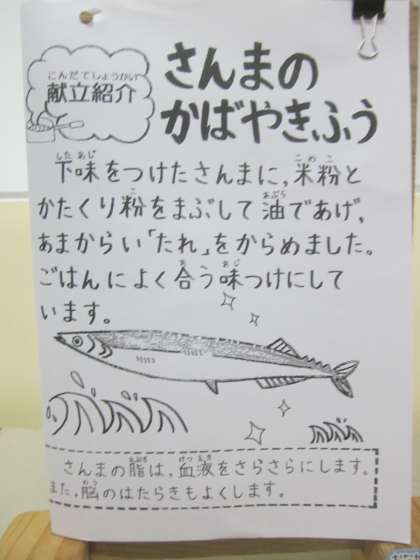 こんだてしょうかい
献立紹介
さんまの
かばやきふう
下味をつけたさんまに、米粉と
かたくり粉をまぶして油であげ、
あまからい「たれ」をからめました。
ごはんによく合う味つけにして
います。
さんまの脂は、血液をさらさらにします。
また、脳のはたらきもよくします。